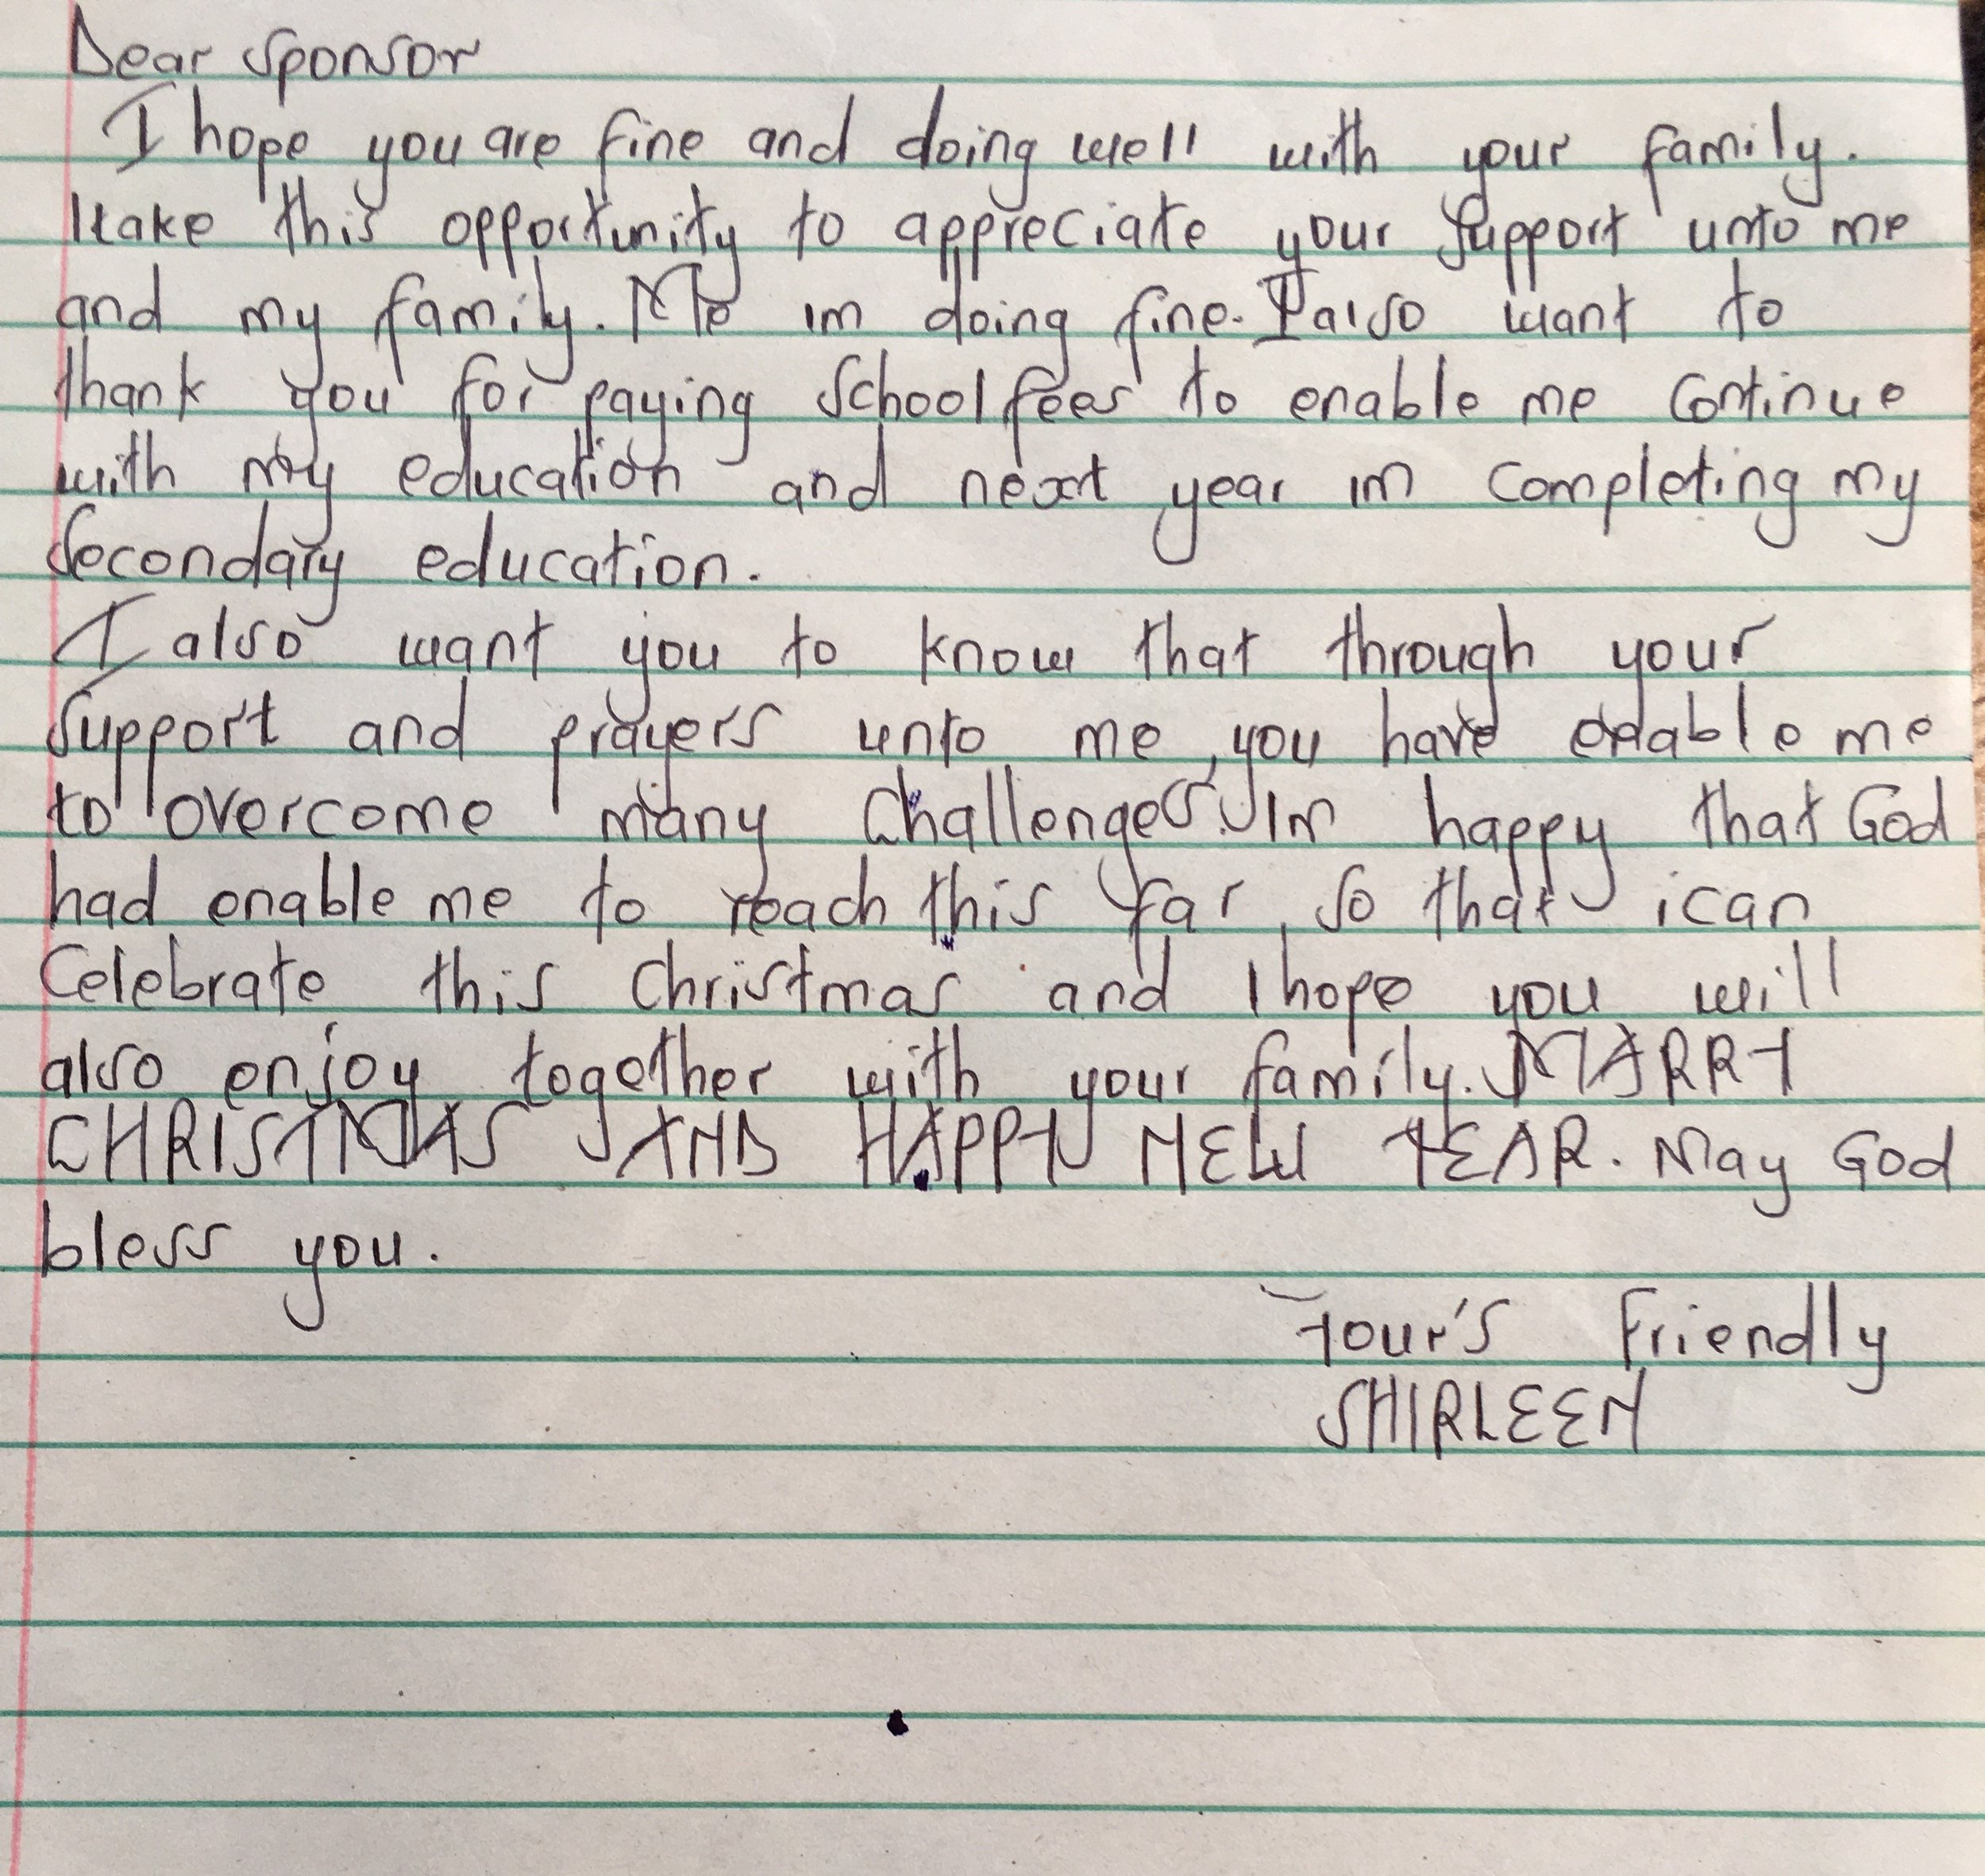 Dear Sponsor
I hope you are fine and doing well with your family.
I take this opportunity to appreciate your support unto me
and my family. Me im doing fine. I also want to
thank you for paying school fees to enable me continue
with my education and next year im completing my
Secondary education.
I also want you to know that through your
support and prayers unto me, you have enable me
to overcome many challenges. Im happy that God
had enable me to reach this far, so that i can
Celebrate this Christmas and I hope you will
also enjoy together with your family. MARRY
CHRISTMAS AND HAPPY NEW YEAR. May God
bless you.
Your's friendly
SHIRLEEN